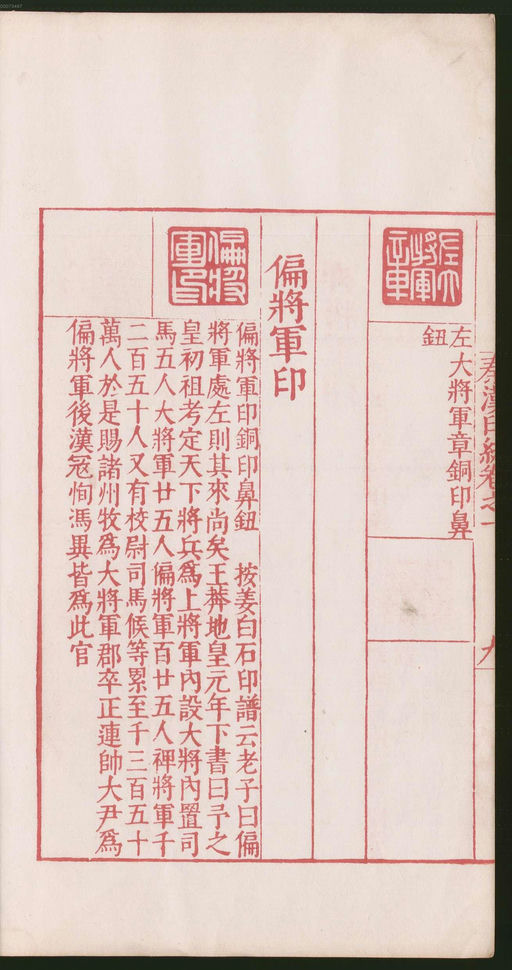 00073487
秦漢印統卷之一
九
左大將軍章
左大將軍章銅印鼻
鈕
偏將軍印
偏將軍印
偏將軍印銅印鼻鈕 按姜白石印譜云老子曰偏
將軍處左則其來尚矣王莽地皇元年下書曰予之
皇初祖考定天下將兵爲上將軍內設大將內置司
馬五人大將軍廿五人偏將軍百廿五人裨將軍千
二百五十人又有校尉司馬候等累至千三百五十
萬人於是賜諸州牧爲大將軍郡卒正連帥大尹爲
偏將軍後漢寇恂馮異皆爲此官